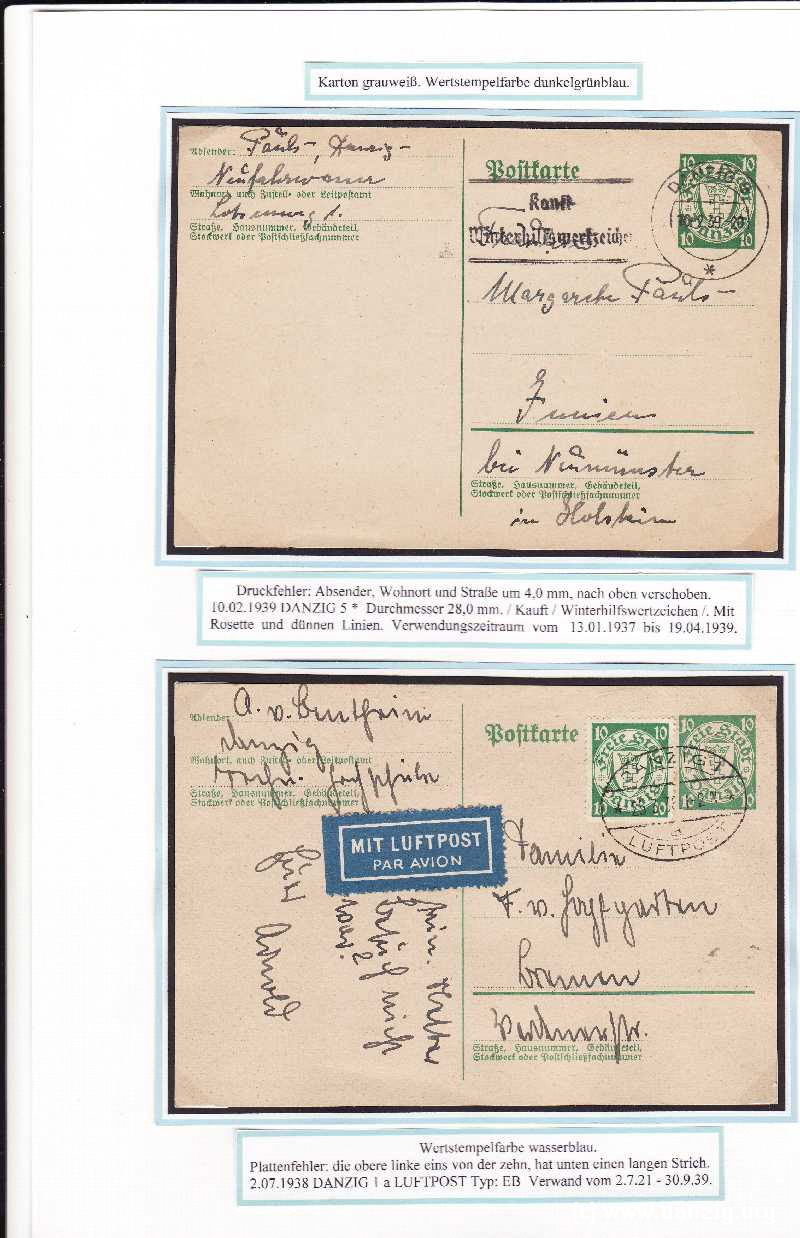 Karton grauweiß. Wertstempelfarbe dunkelgrünblau.
Absender: Pauls-, Danzig-
Neufahrwasser
Wohnort, auch Zustell- oder Leitpostamt
Straße, Hausnummer, Gebäudeteil,
Stockwerk oder Postschließfachnummer
Postkarte
Kauft
Winterhilfswertzeichen
10 10
DANZIG 5
10 10
*
Margarete Pauls-
bei Neumünster
Straße, Hausnummer, Gebäudeteil,
Stockwerk oder Postschließfachnummer
in Holstein
Druckfehler: Absender, Wohnort und Straße um 4,0 mm, nach oben verschoben.
10.02.1939 DANZIG 5 * Durchmesser 28,0 mm. / Kauft / Winterhilfswertzeichen /. Mit
Rosette und dünnen Linien. Verwendungszeitraum vom 13.01.1937 bis 19.04.1939.
Absender: A. v. Bentheim
Danzig
Wohnort, auch Zustell- oder Leitpostamt
Straße, Hausnummer, Gebäudeteil,
Stockwerk oder Postschließfachnummer
Postkarte
10 10
Freie Stadt
Danzig
10 10
10 10
Freie Stadt
Danzig
10 10
DANZIG 1
LUFTPOST
MIT LUFTPOST
PAR AVION
Arnold
Familie
F. v. Hoffgarten
Bremen
Straße, Hausnummer, Gebäudeteil,
Stockwerk oder Postschließfachnummer
Wertstempelfarbe wasserblau.
Plattenfehler: die obere linke eins von der zehn, hat unten einen langen Strich.
2.07.1938 DANZIG 1 a LUFTPOST Typ: EB Verwand vom 2.7.21 - 30.9.39.
(c) www.danzig.org